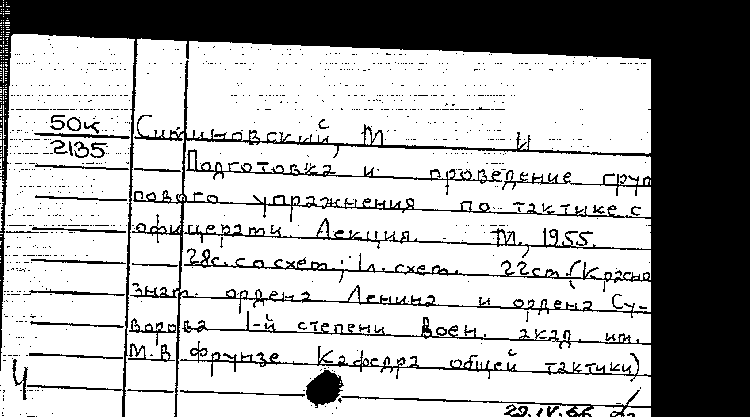 50к
2135
М И
Подготовка и проведение груп
пового упражнения по тактике с
офицерами. Лекция. М., 1955.
28с. со схем.; 1л. схем. 22см. (Красно
знам. ордена Ленина и ордена Су-
ворова 1-й степени Воен. акад. им.
М.В Фрунзе. Кафедра общей тактики)
4
29.IV.66